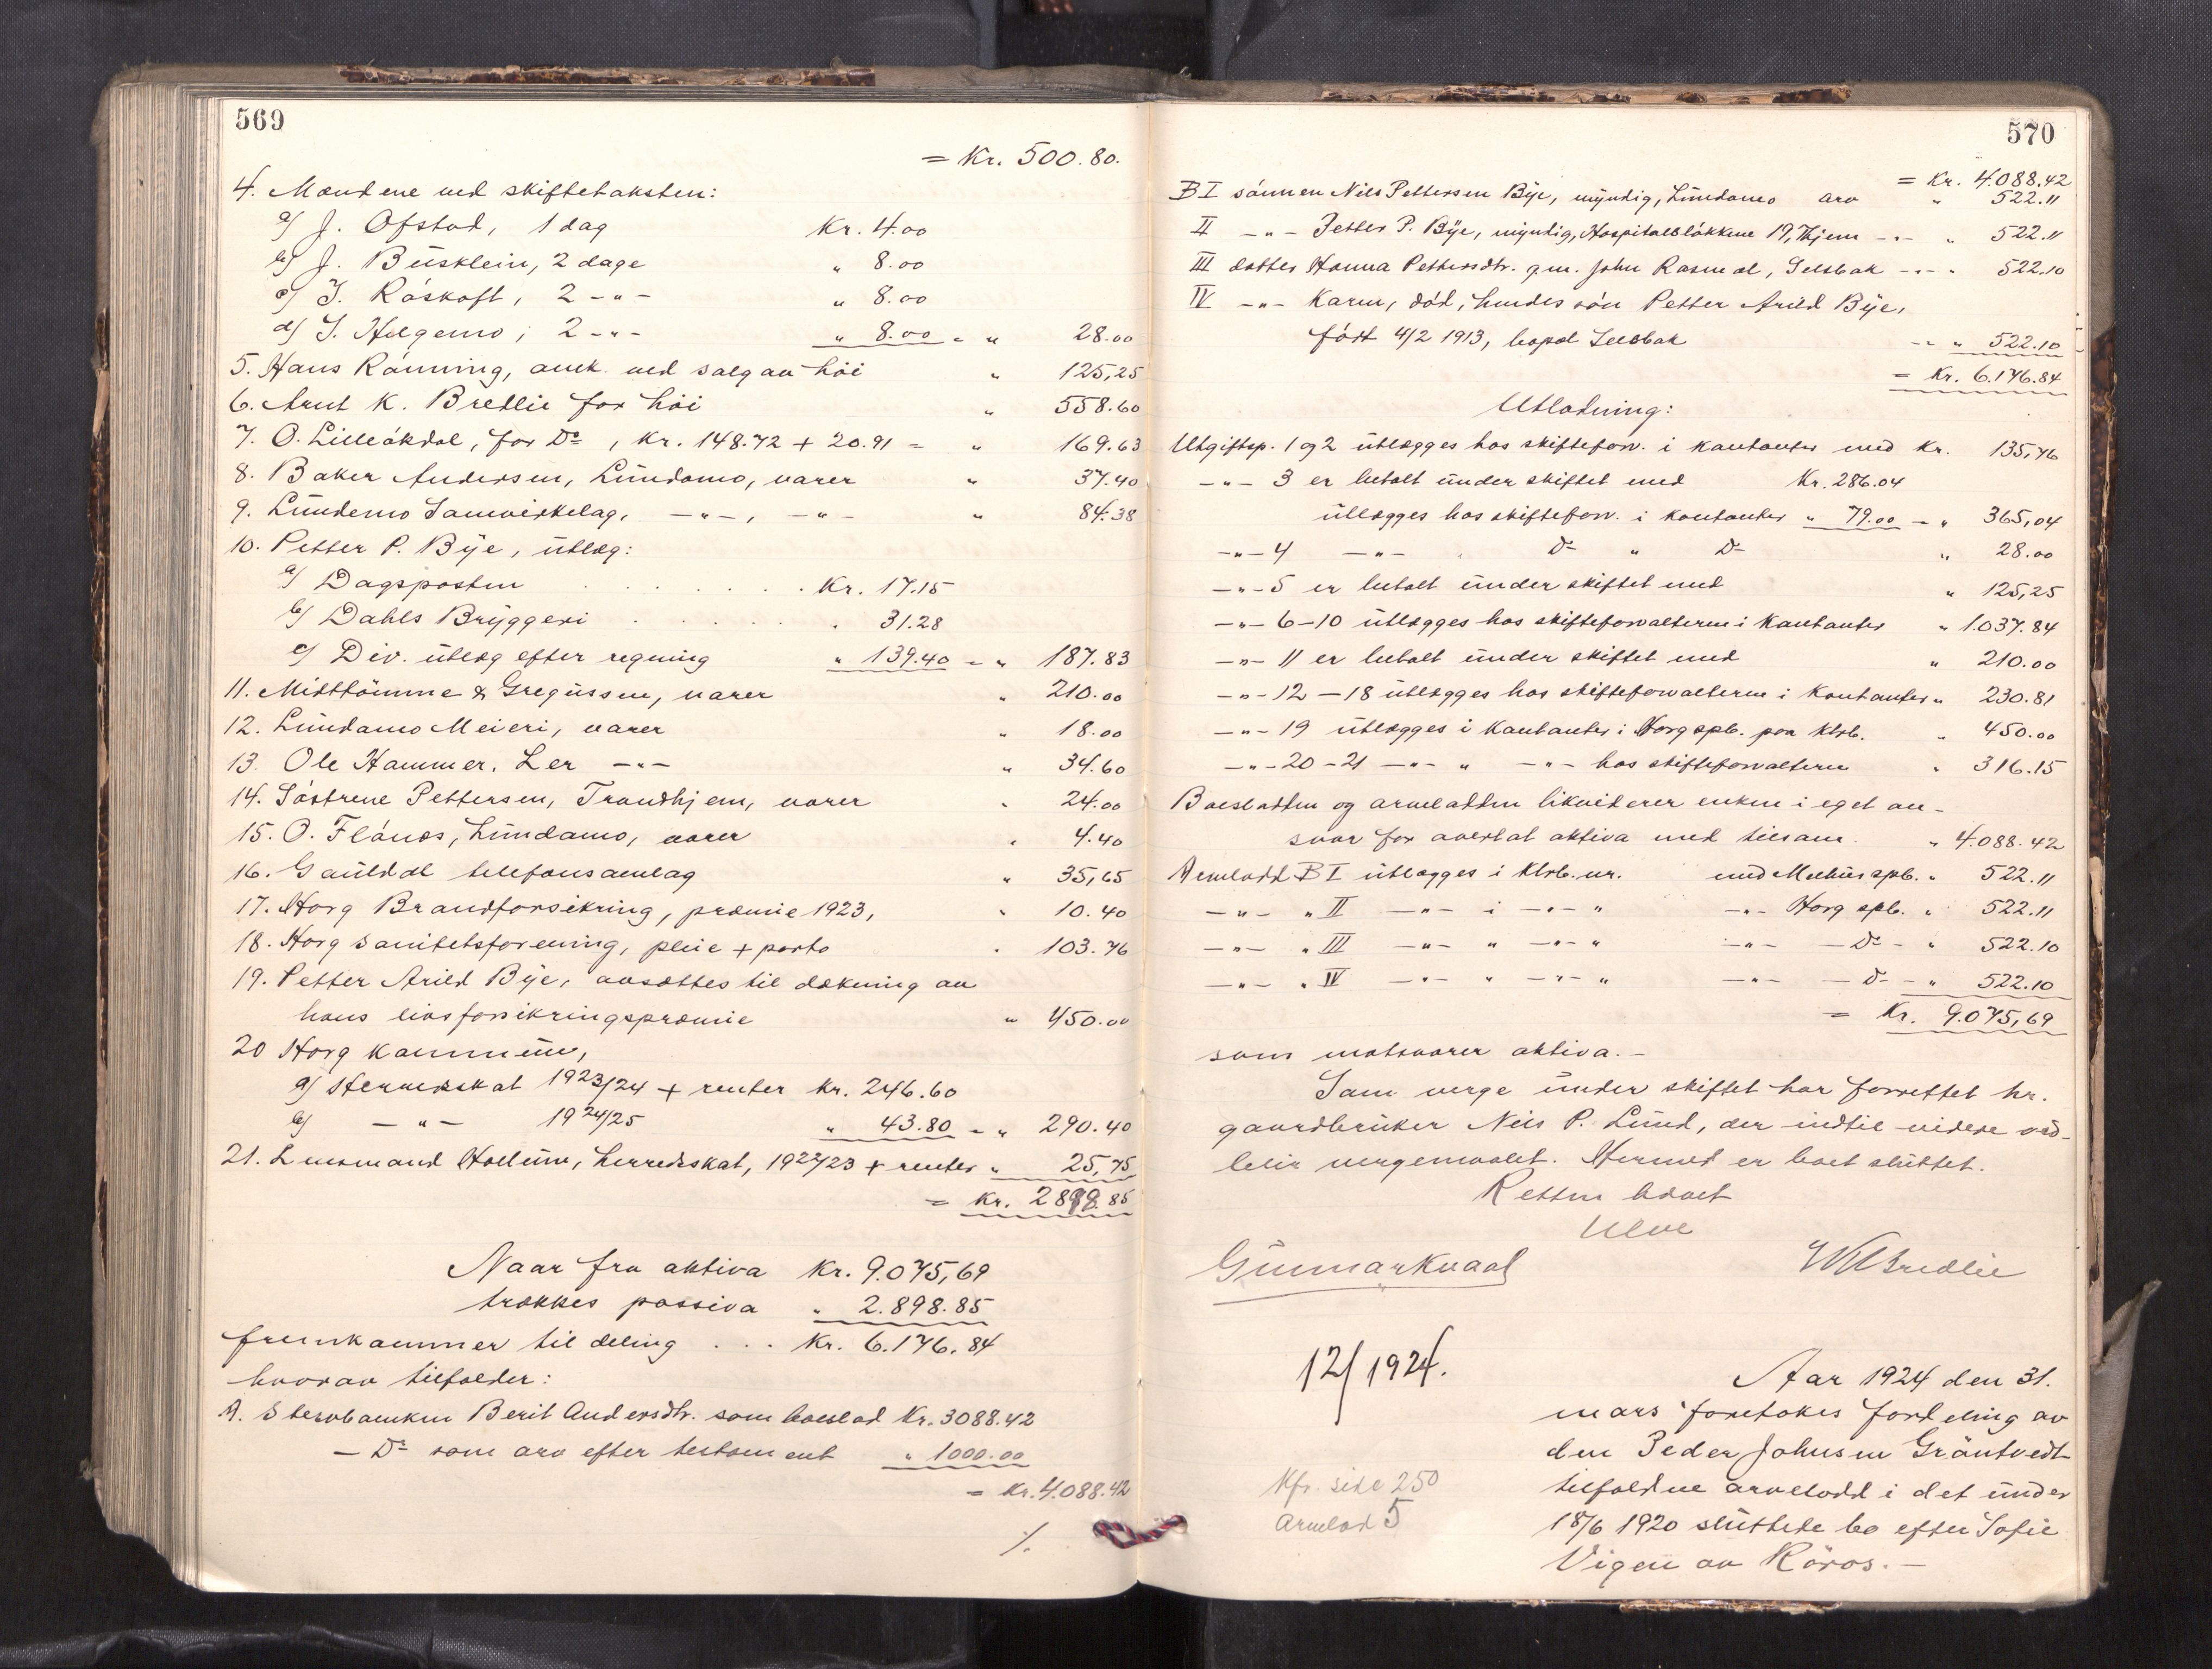 569
= Kr. 500.80.
4. Mændene ved skiftetaksten:
a) J. Ofstad, 1 dag Kr. 4.00
b) J. Busklein, 2 dage " 8.00
c) J. Röskoft, 2 -"- " 8.00
d) J. Helgemo, 2 -"- " 8.00 = " 28.00
5. Hans Rönning, auk. ved salg av höi " 125,25
6. Arnt K. Bredlie for höi " 558.60
7. O. Lilleökdal, for Do, Kr. 148.72 + 20.91 = " 169.63
8. Baker Andersen, Lundamo, varer " 37.40
9. Lundemo Samvirkelag, -"-, -"- " 84.38
10. Petter P. Bye, utlæg:
a) Dagsposten . . . . . . Kr. 17.15
b) Dahls Bryggeri . . . . . " 31.28
c) Div. utlæg efter regning " 139.40 = " 187.83
11. Midttömme & Gregussen, varer " 210.00
12. Lundamo Meieri, varer " 18.00
13. Ole Hammer, Ler -"- " 34.60
14. Söstrene Pettersen, Trondhjem, varer " 24.00
15. O. Flönes, Lundamo, varer " 4.40
16. Gauldal telefonsamlag " 35,65
17. Horg Brandforsikring, præmie 1923, " 10.40
18. Horg sanitetsforening, pleie + porto " 103.76
19. Petter Arild Bye, avsættes til dækning av
hans livsforsikringspræmie " 450.00
20 Horg kommune,
a) Herredsskat 1923/24 + renter Kr. 246.60
b) -"- 1924/25 " 43.80 = " 290.40
21. Lensmand Hollum, herredsskat, 1922/23 + renter " 25,75
= Kr. 2898.85
Naar fra aktiva Kr. 9.075,69
trækkes passiva " 2.898.85
fremkommer til deling . . . Kr. 6.176.84
hvorav tilfalder:
A. Stervboenken Berit Andersdtr. som boeslod Kr. 3088.42
- Do som arv efter testament " 1000.00
= Kr. 4.088.42
./.
570
= Kr. 4.088.42
B I sönnen Nils Pettersen Bye, myndig, Lundamo arv " 522.11
II -"- Petter P. Bye, myndig, Hospitalslökkene 17, Thjem -"- " 522.11
III datter Hanna Pettersdtr. gm. John Rosmæl, Selsbak -"- " 522.10
IV -"- Karen, död, hendes sön Petter Arild Bye,
födt 4/2 1913, bopæl Selsbak -"- " 522.10
= Kr. 6.176.84
Utlodning:
Utgiftsp. 1 og 2 utlægges hos skifteforv. i kontanter med Kr. 135,76
-"- 3 er betalt under skiftet med Kr. 286.04
utlægges hos skifteforv. i kontanter " 79.00 = " 365,04
-"- 4 -"- " Do " Do " 28.00
-"- 5 er betalt under skiftet med " 125,25
-"- 6-10 utlægges hos skifteforvalteren i kontanter " 1.037.84
-"- 11 er betalt under skiftet med " 210.00
-"- 12-18 utlægges hos skifteforvalteren i kontanter " 230.81
-"- 19 utlægges i kontanter i Horg spb. paa ktrb. " 450.00
-"- 20-21 -"- " -"- hos skifteforvalteren " 316.15
Boeslodden og arvelodden likviderer enken i eget an-
svar for overtat aktiva med tilsam. " 4.088.42
Arvelodd B I utlægges i ktrb. nr. med Melhus spb. " 522.11
-"- " II -"- i -"- " -"- Horg spb. " 522.11
-"- " III -"- " -"- " -"- -Do- " 522.10
-"- " IV -"- " -"- " -"- -Do- " 522.10
= Kr. 9.075,69
som motsvarer aktiva.-
Som verge under skiftet har forrettet hr.
gaardbruker Nils P. Lund, der indtil videre ved-
blir vergemaalet. Hermed er boet sluttet.
Retten hævet
Ulve
Gunnar Kvaal
Bredlie
12/1924.
Aar 1924 den 31.
mars foretokes fordeling av
den Peder Johnsen Gräntvedt
tilfaldne arvelodd i det under
18/6 1920 sluttede bo efter Sofie
Vigen av Röros.-
Kfr. side 250
Arvelod 5